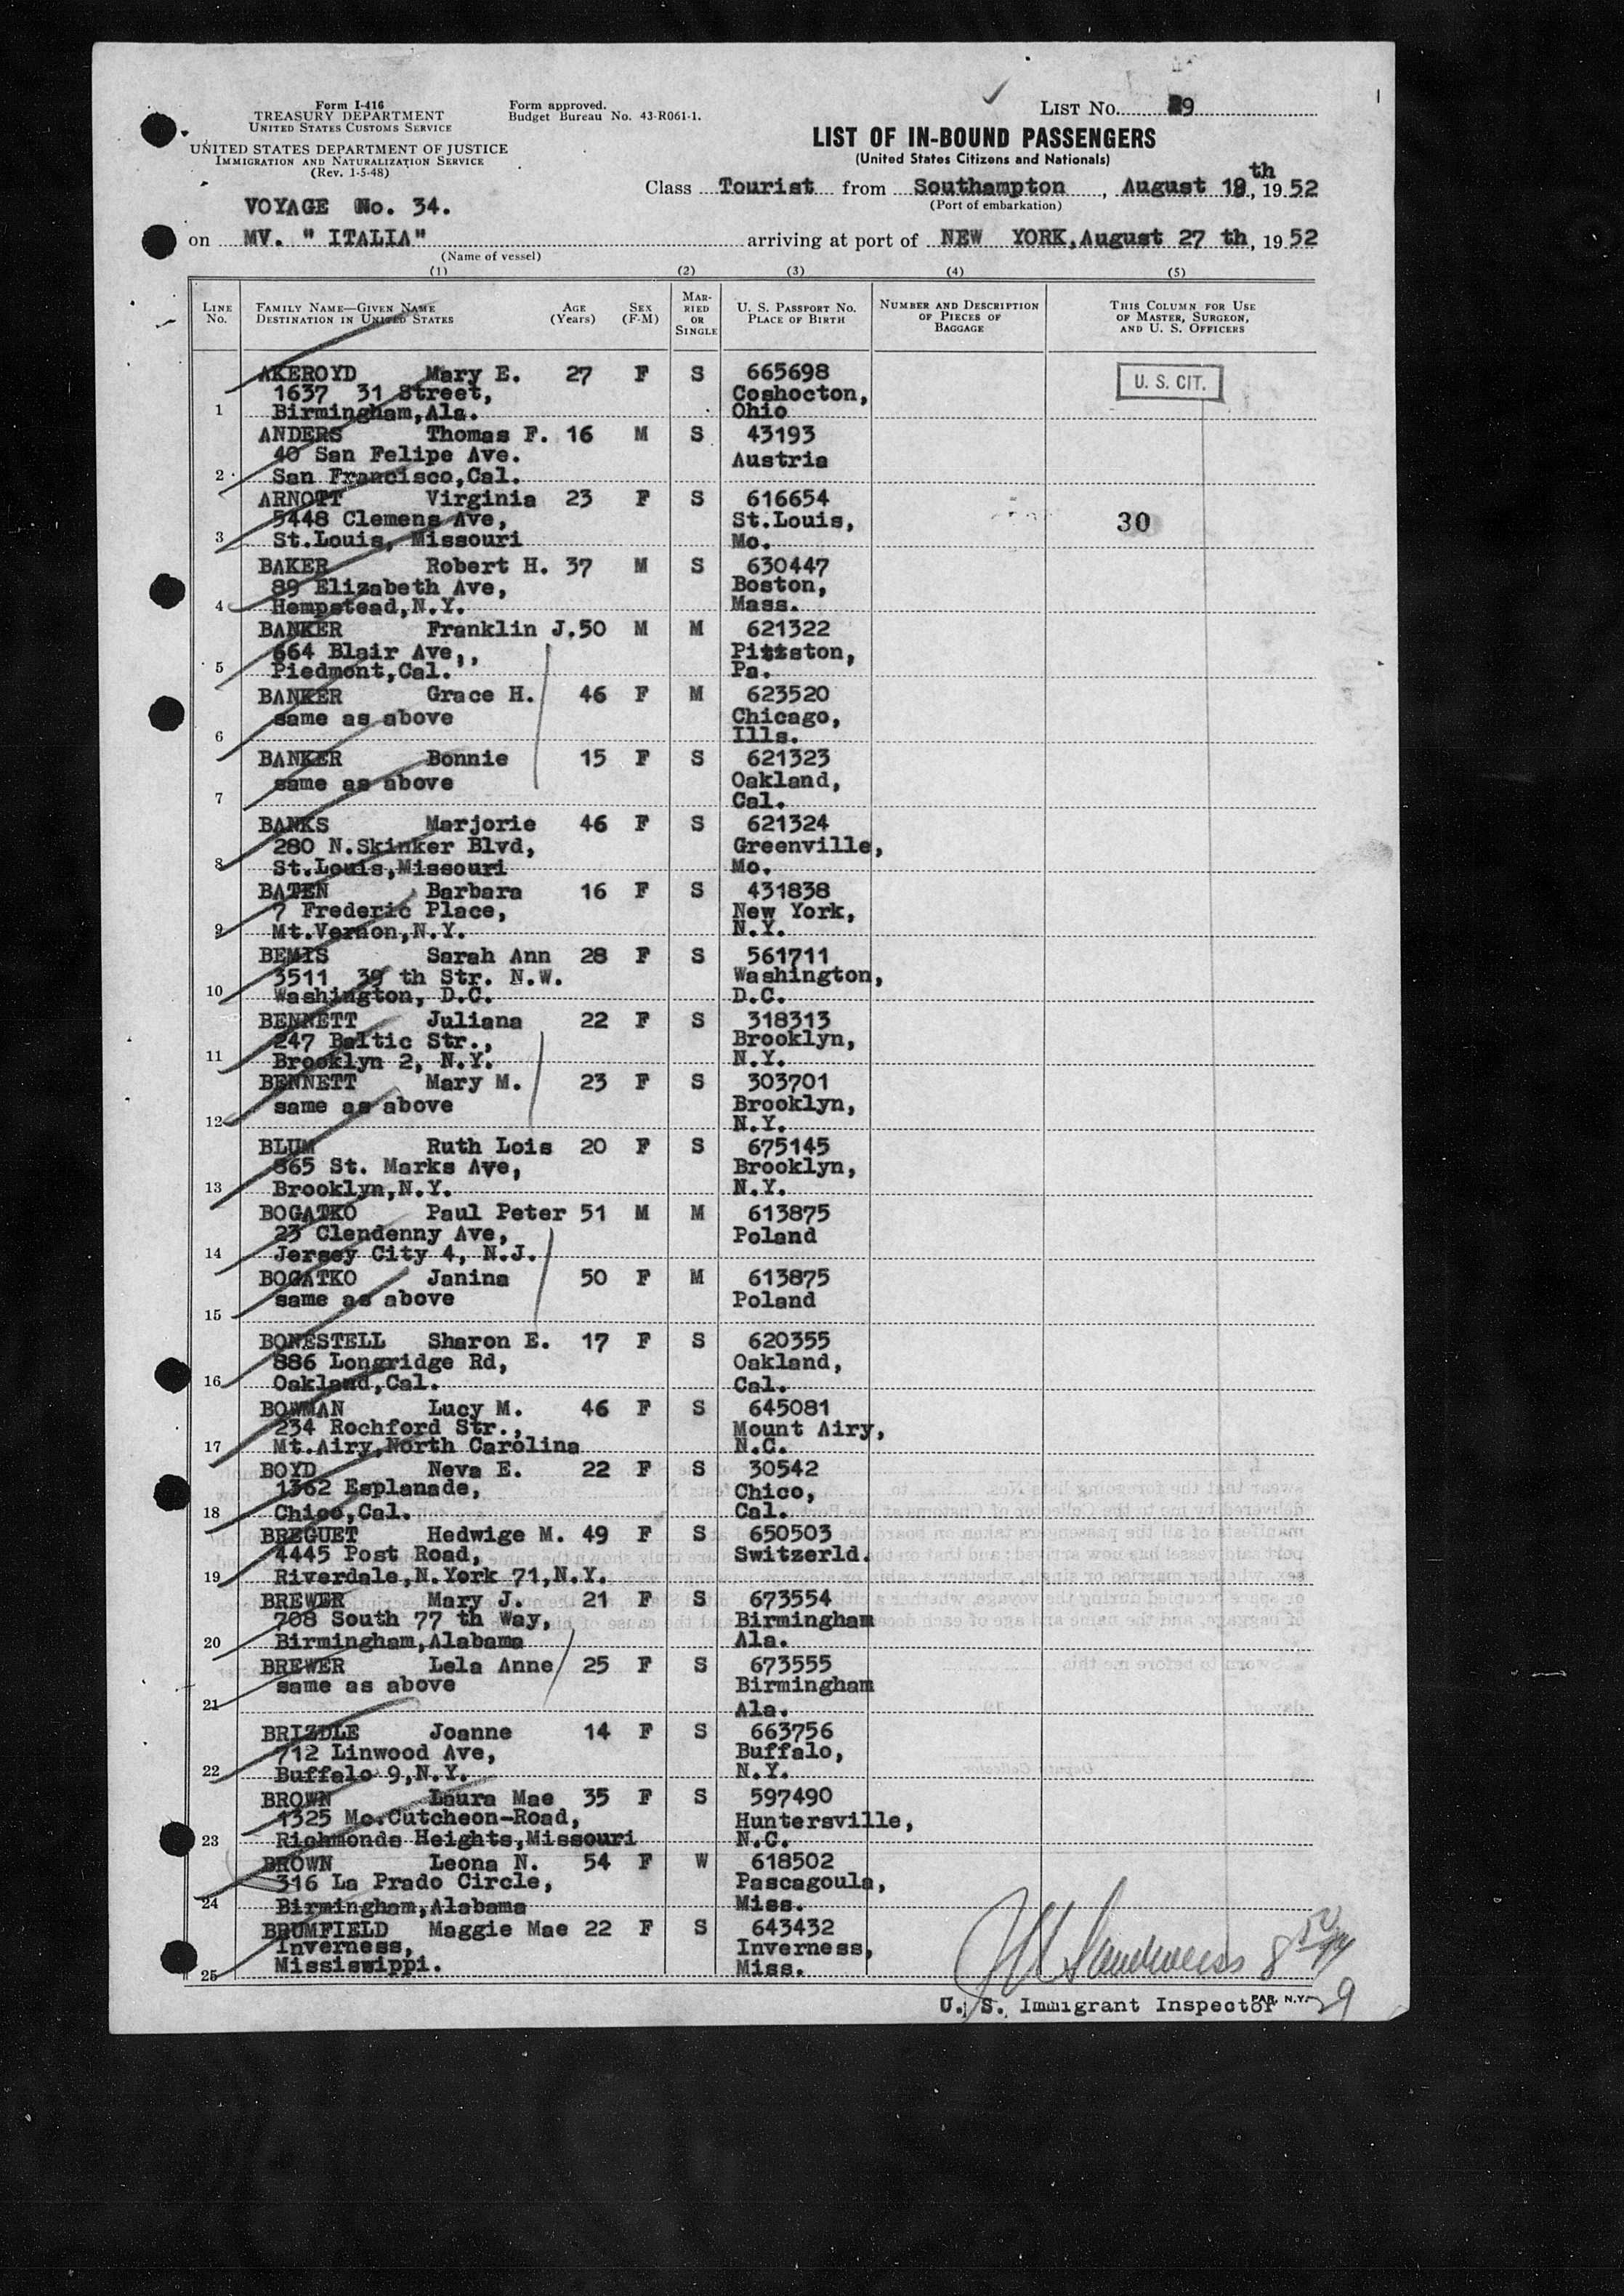 Form I-416
TREASURY DEPARTMENT
UNITED STATES CUSTOMS SERVICE
UNITED STATES DEPARTMENT OF JUSTICE
IMMIGRATION AND NATURALIZATION SERVICE
(Rev. 1-5-48)
Form approved.
Budget Bureau No. 43-R061-1.
LIST No. 9
LIST OF IN-BOUND PASSENGERS
(United States Citizens and Nationals)
Class Tourist from Southampton, August 19th, 1952
(Port of embarkation)
VOYAGE No. 34.
on MV. " ITALIA" arriving at port of NEW YORK, August 27 th, 1952
(Name of vessel)
(1) (2) (3) (4) (5)
LINE No. FAMILY NAME—GIVEN NAME DESTINATION IN UNITED STATES AGE (Years) SEX (F-M) MARRIED OR SINGLE U. S. PASSPORT No. PLACE OF BIRTH NUMBER AND DESCRIPTION OF PIECES OF BAGGAGE THIS COLUMN FOR USE OF MASTER, SURGEON, AND U. S. OFFICERS
AKEROYD Mary E. 27 F S 665698 U. S. CIT.
1637 31 Street, Coshocton,
1 Birmingham,Ala. Ohio
ANDERS Thomas F. 16 M S 43193
40 San Felipe Ave. Austria
2 San Francisco,Cal.
ARNOTT Virginia 23 F S 616654
5448 Clemens Ave, St.Louis, 30
3 St.Louis, Missouri Mo.
BAKER Robert H. 37 M S 630447
89 Elizabeth Ave, Boston,
4 Hempstead,N.Y. Mass.
BANKER Franklin J.50 M M 621322
664 Blair Ave,, Pittston,
5 Piedmont,Cal. Pa.
BANKER Grace H. 46 F M 623520
same as above Chicago,
6 Ills.
BANKER Bonnie 15 F S 621323
same as above Oakland,
7 Cal.
BANKS Marjorie 46 F S 621324
280 N.Skinker Blvd, Greenville,
8 St.Louis,Missouri Mo.
BATEN Barbara 16 F S 431838
7 Frederic Place, New York,
9 Mt.Vernon,N.Y. N.Y.
BEMIS Sarah Ann 28 F S 561711
3511 39 th Str. N.W. Washington,
10 Washington, D.C. D.C.
BENNETT Juliana 22 F S 318313
247 Baltic Str., Brooklyn,
11 Brooklyn 2, N.Y. N.Y.
BENNETT Mary M. 23 F S 303701
same as above Brooklyn,
12 N.Y.
BLUM Ruth Lois 20 F S 675145
865 St. Marks Ave, Brooklyn,
13 Brooklyn,N.Y. N.Y.
BOGATKO Paul Peter 51 M M 613875
23 Clendenny Ave, Poland
14 Jersey City 4, N.J.
BOGATKO Janina 50 F M 613875
same as above Poland
15
BONESTELL Sharon E. 17 F S 620355
886 Longridge Rd, Oakland,
16 Oakland,Cal. Cal.
BOWMAN Lucy M. 46 F S 645081
234 Rochford Str., Mount Airy,
17 Mt.Airy,North Carolina N.C.
BOYD Neva E. 22 F S 30542
1362 Esplanade, Chico,
18 Chico,Cal. Cal.
BREGUET Hedwige M. 49 F S 650503
4445 Post Road, Switzerld.
19 Riverdale,N.York 71,N.Y.
BREWER Mary J. 21 F S 673554
708 South 77 th Way, Birmingham
20 Birmingham,Alabama Ala.
BREWER Lela Anne 25 F S 673555
same as above Birmingham
21 Ala.
BRIZDLE Joanne 14 F S 663756
712 Linwood Ave, Buffalo,
22 Buffalo 9,N.Y. N.Y.
BROWN Laura Mae 35 F S 597490
1325 Mc.Cutcheon-Road, Huntersville,
23 Richmonds Heights,Missouri N.C.
BROWN Leona N. 54 F W 618502
316 La Prado Circle, Pascagoula,
24 Birmingham,Alabama Miss.
BRUMFIELD Maggie Mae 22 F S 643432
Inverness, Inverness,
25 Mississippi. Miss.
U. S. Immigrant Inspector PAR, N.Y.
29